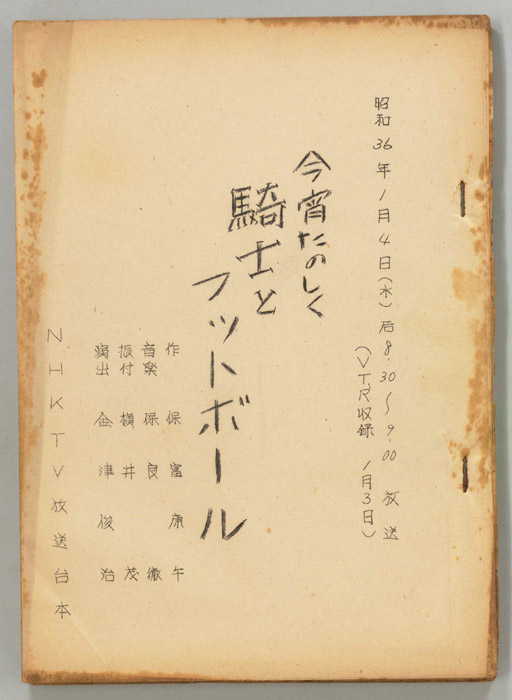 昭和36年1月4日(水)后8.30〜9.00 放送
(VTR収録 1月3日)
今宵たのしく
騎士と
フットボール
作 保富康午
音楽 保良徹
振付 横井茂
演出 金津俊治
NHKTV放送台本